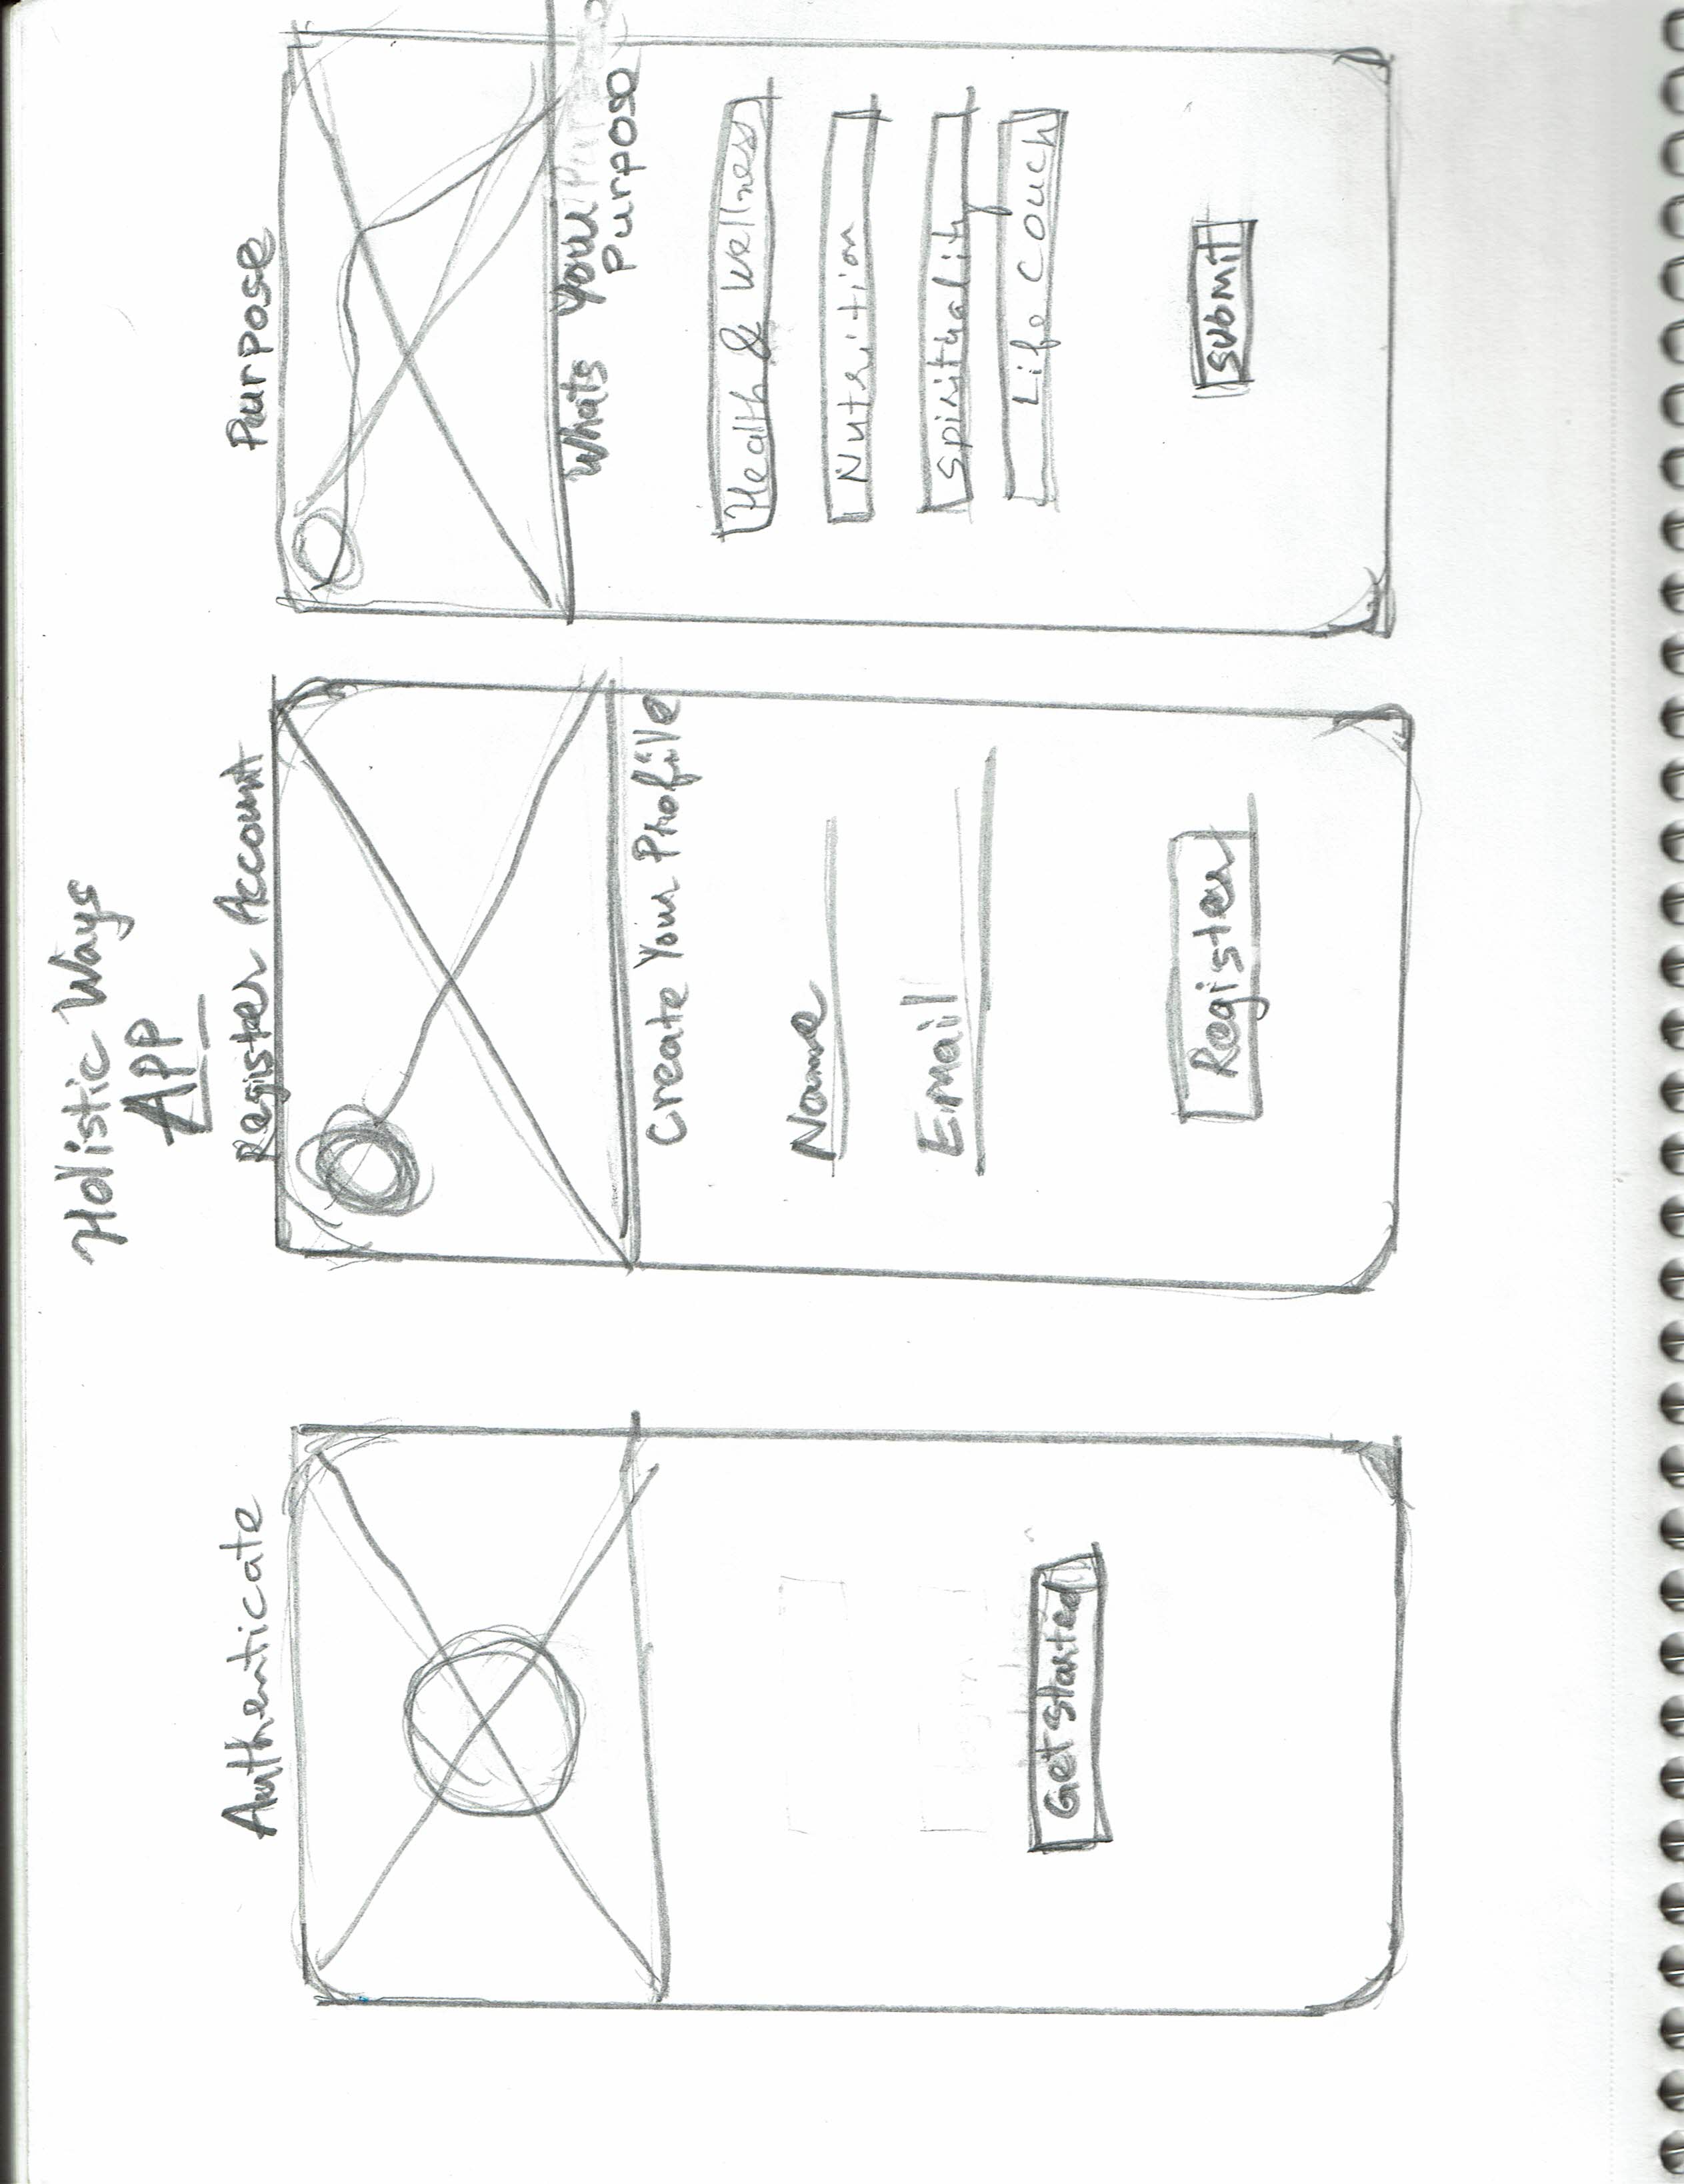 Holistic Ways
APP
Authenticate
Get Started
Register Account
Create Your Profile
Name
Email
Register
Purpose
Whats your
Purpose
Health & Wellness
Nutrition
Spirituality
Life Couch
Submit